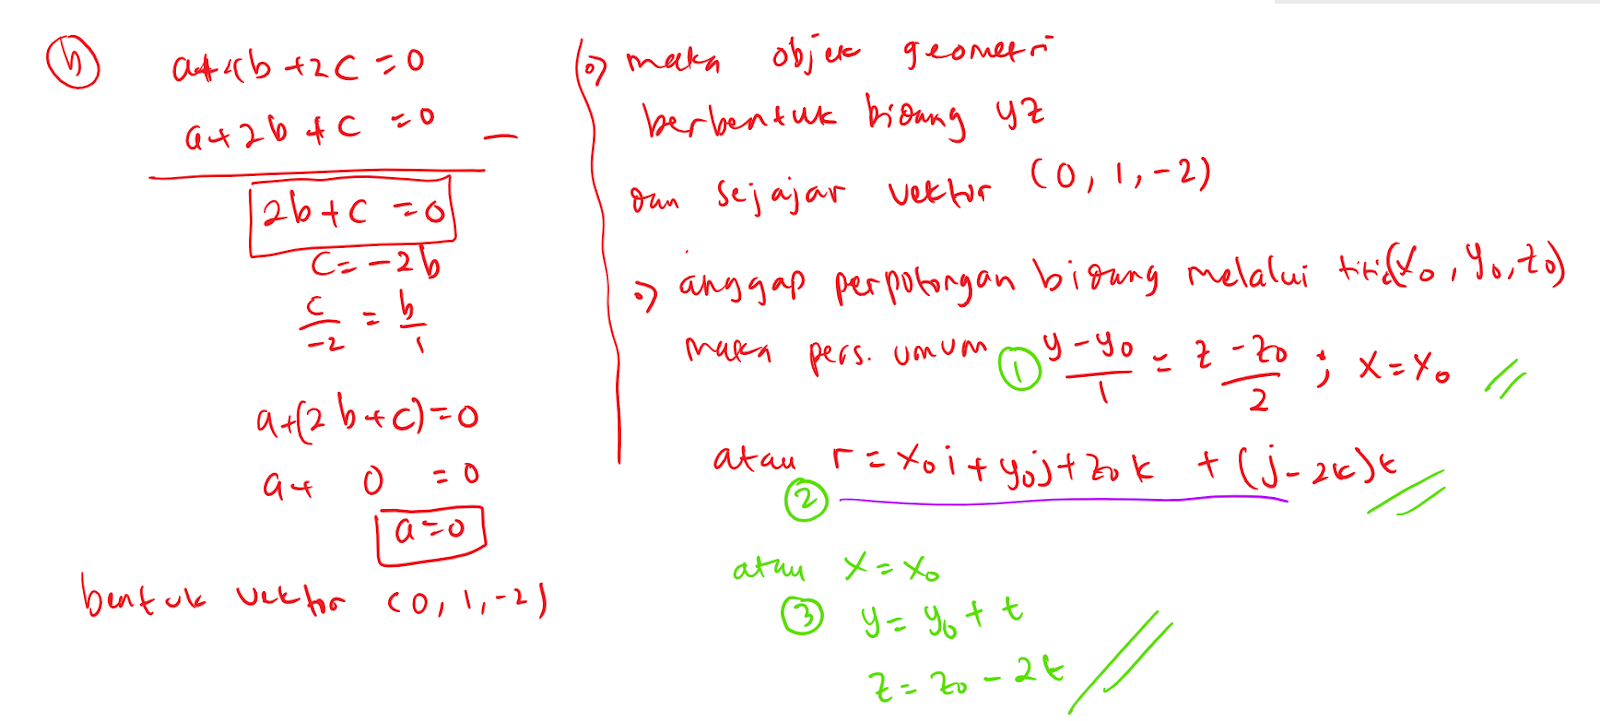 b
a+4b+2c=0
a+2b+c=0 –
2b+c=0
c=-2b
c/-2 = b/1
a+(2b+c)=0
a+ 0 =0
a=0
bentuk vektor (0,1,-2)
maka objek geometri
berbentuk bidang yz
dan sejajar vektor (0,1,-2)
anggap perpotongan bidang melalui titik (x₀,y₀,z₀)
maka pers. umum ① y-y₀/1 = z-z₀/2 ; x=x₀
atau r=x₀i+y₀j+z₀k +(j-2k)t
②
atau x=x₀
③ y=y₀+t
z=z₀-2t